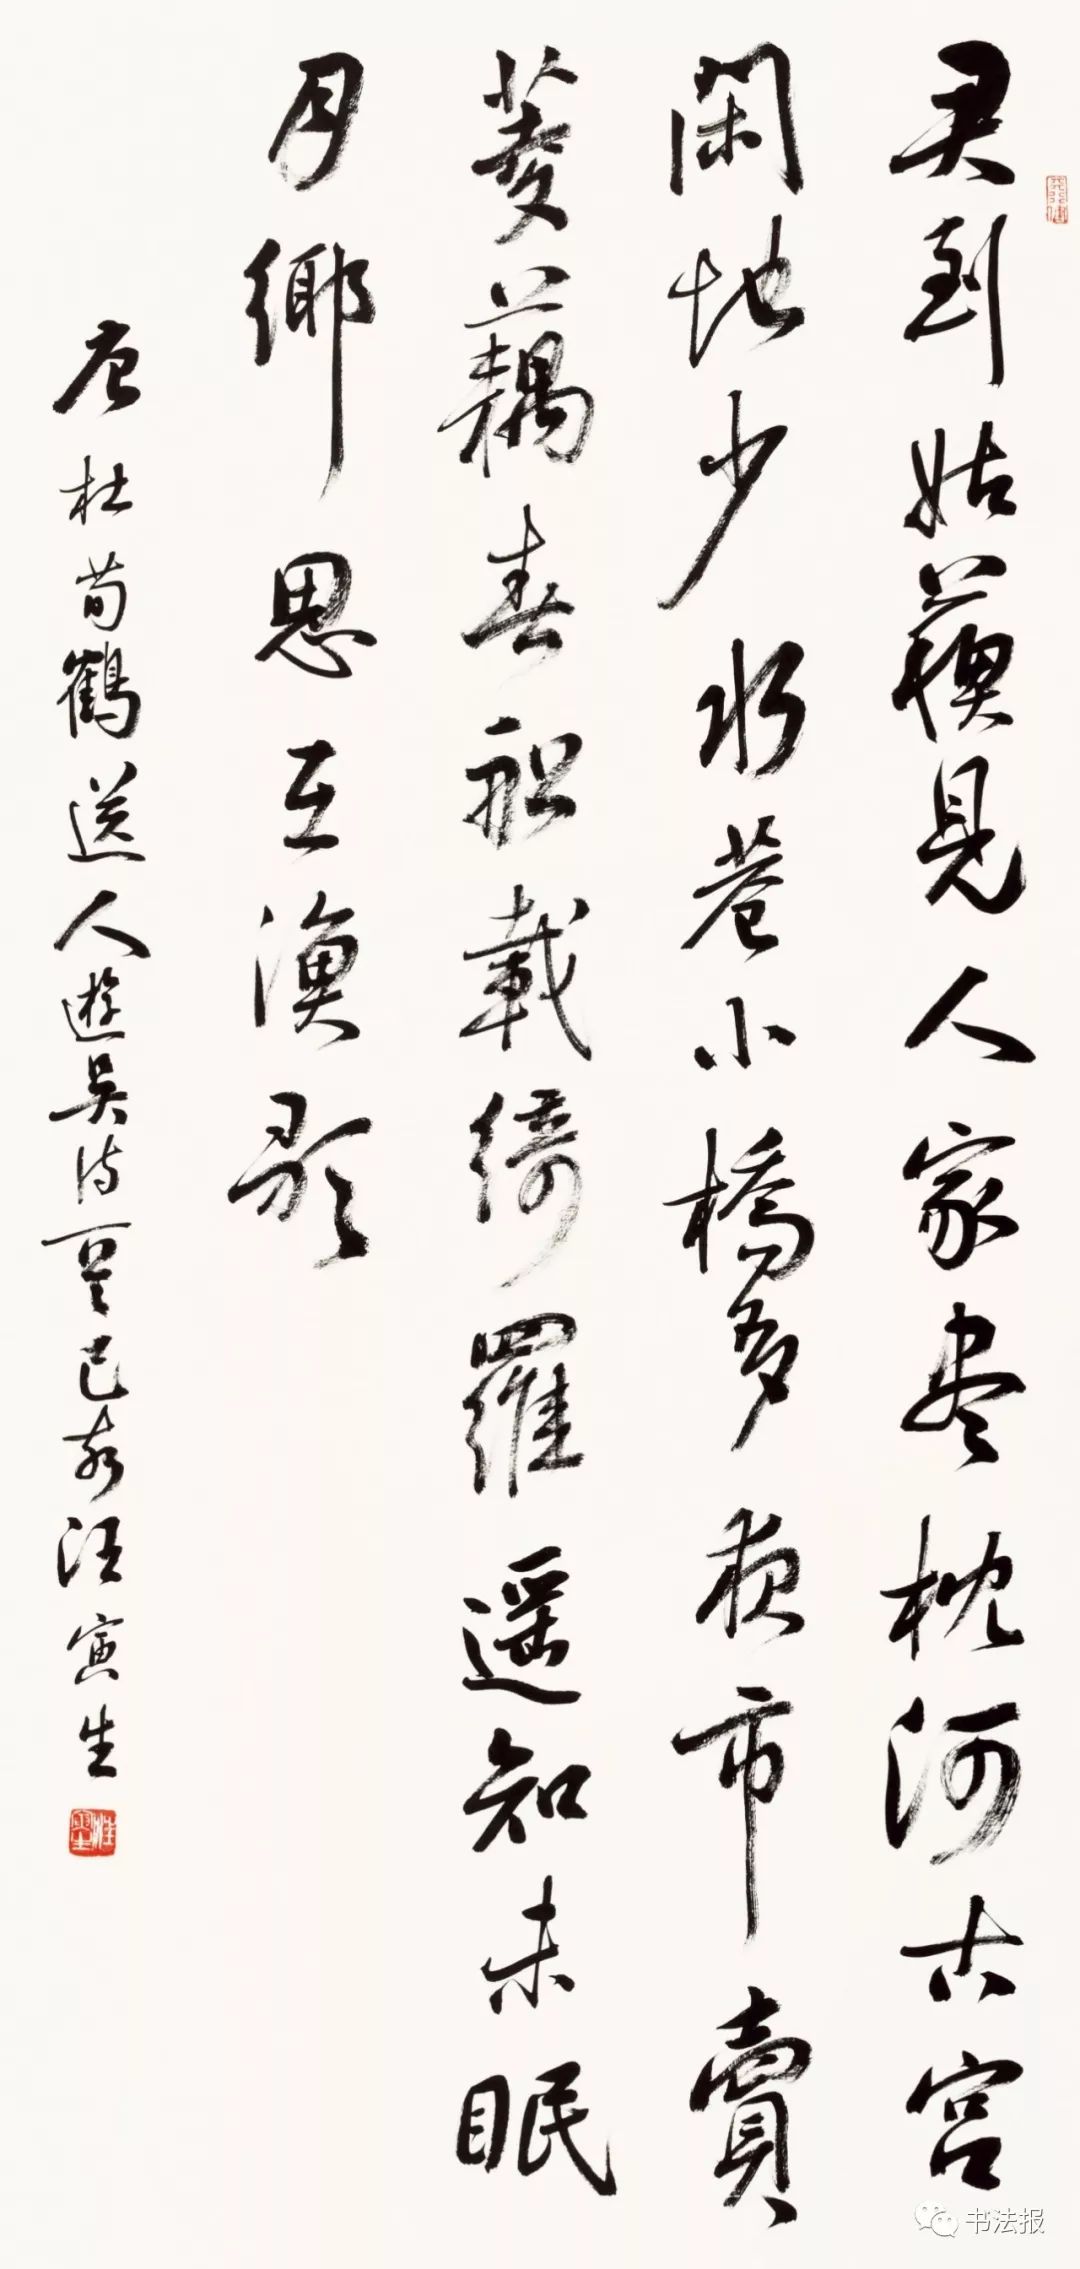 君到姑蘇見人家盡枕河古宮
閑地少水巷小橋多夜市賣
菱藕春船載綺羅遥知未眠
月鄉思在漁歌
唐杜荀鶴送人遊吳詩己亥汪寅生
书法报